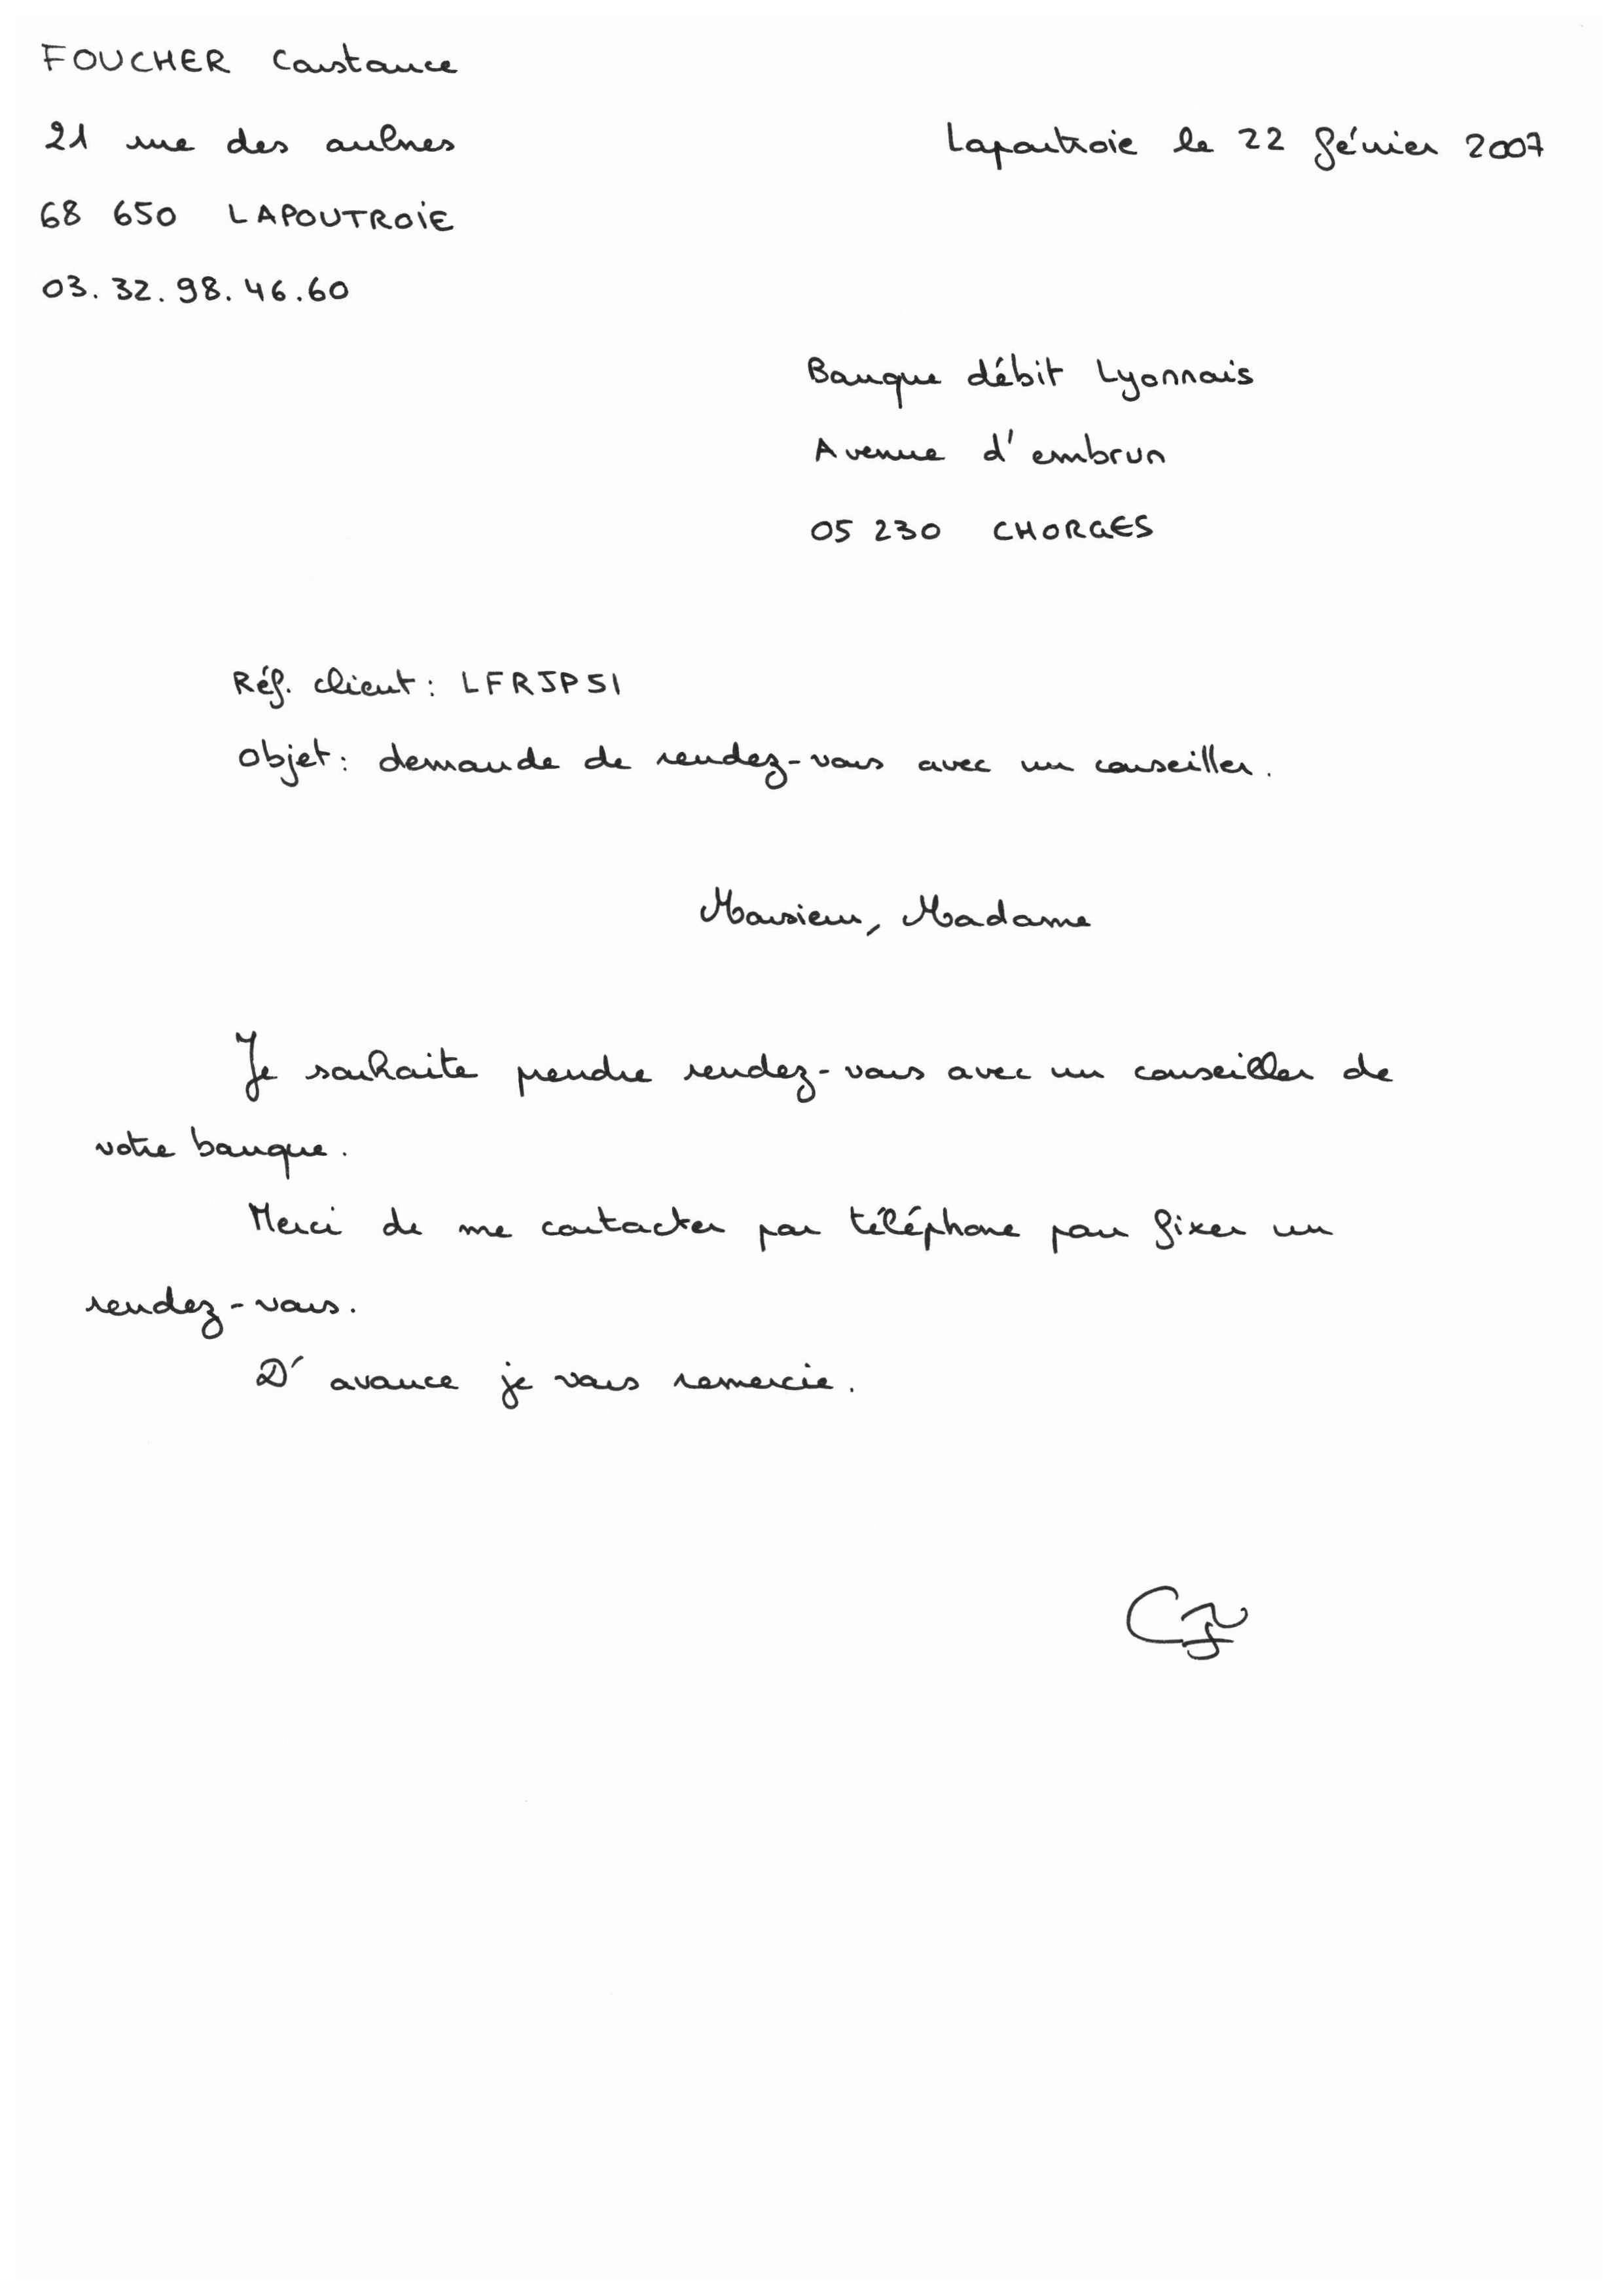 FOUCHER Constance
21 rue des aulnes
Lapoutroie le 22 février 2007
68 650 LAPOUTROIE
03. 32. 98. 46. 60
Banque débit Lyonnais
Avenue d'embrun
05 230 CHORGES
Réf. client : LFRJP51
Objet : demande de rendez-vous avec un conseiller.
Monsieur, Madame
Je souhaite prendre rendez-vous avec un conseiller de
votre banque.
Merci de me contacter par téléphone pour fixer un
rendez-vous.
D'avance je vous remercie.